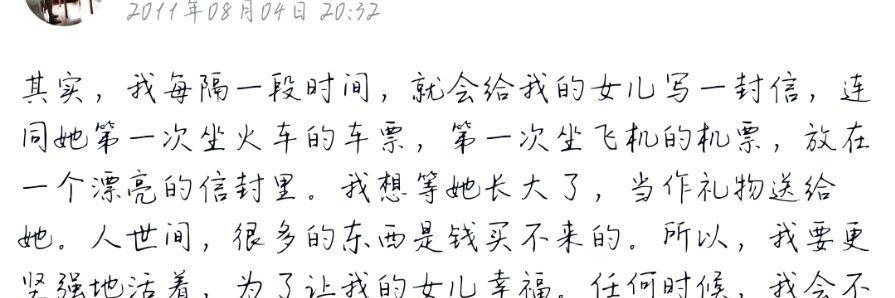 2011年08月04日 20:32
其实，我每隔一段时间，就会给我的女儿写一封信，连
同她第一次坐火车的车票，第一次坐飞机的机票，放在
一个漂亮的信封里。我想等她长大了，当作礼物送给
她。人世间，很多的东西是钱买不来的。所以，我要更
坚强地活着，为了让我的女儿幸福。任何时候，我会不